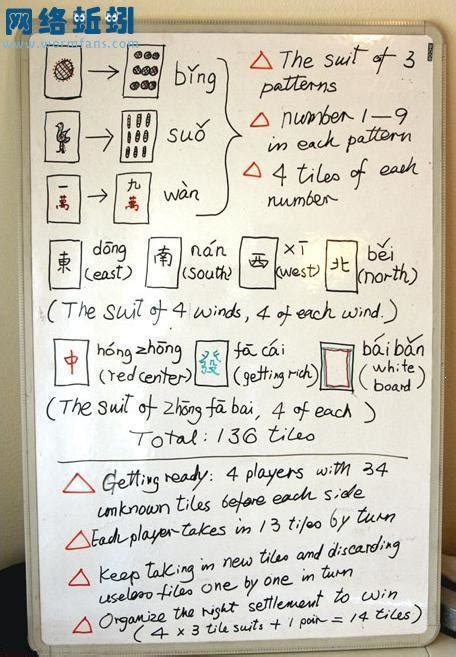 网络蚯蚓
www.wormfans.com
bǐng
suǒ
一萬
九萬
wàn
△ The suit of 3
patterns
△ number 1-9
in each pattern
△ 4 tiles of each
number
東 dōng
(east)
南 nán
(south)
西 xī
(west)
北 běi
(north)
(The suit of 4 winds, 4 of each wind.)
中 hóng zhōng
(red center)
發 fā cái
(getting rich)
bái bǎn
(white
board)
(The suit of zhōng fā bai, 4 of each)
Total: 136 tiles
△ Getting ready: 4 players with 34
unknown tiles before each side
△ Each player takes in 13 tiles by turn
△ Keep taking in new tiles and discarding
useless tiles one by one in turn
△ Organize the right settlement to win
(4 x 3 tile suits + 1 pair = 14 tiles)